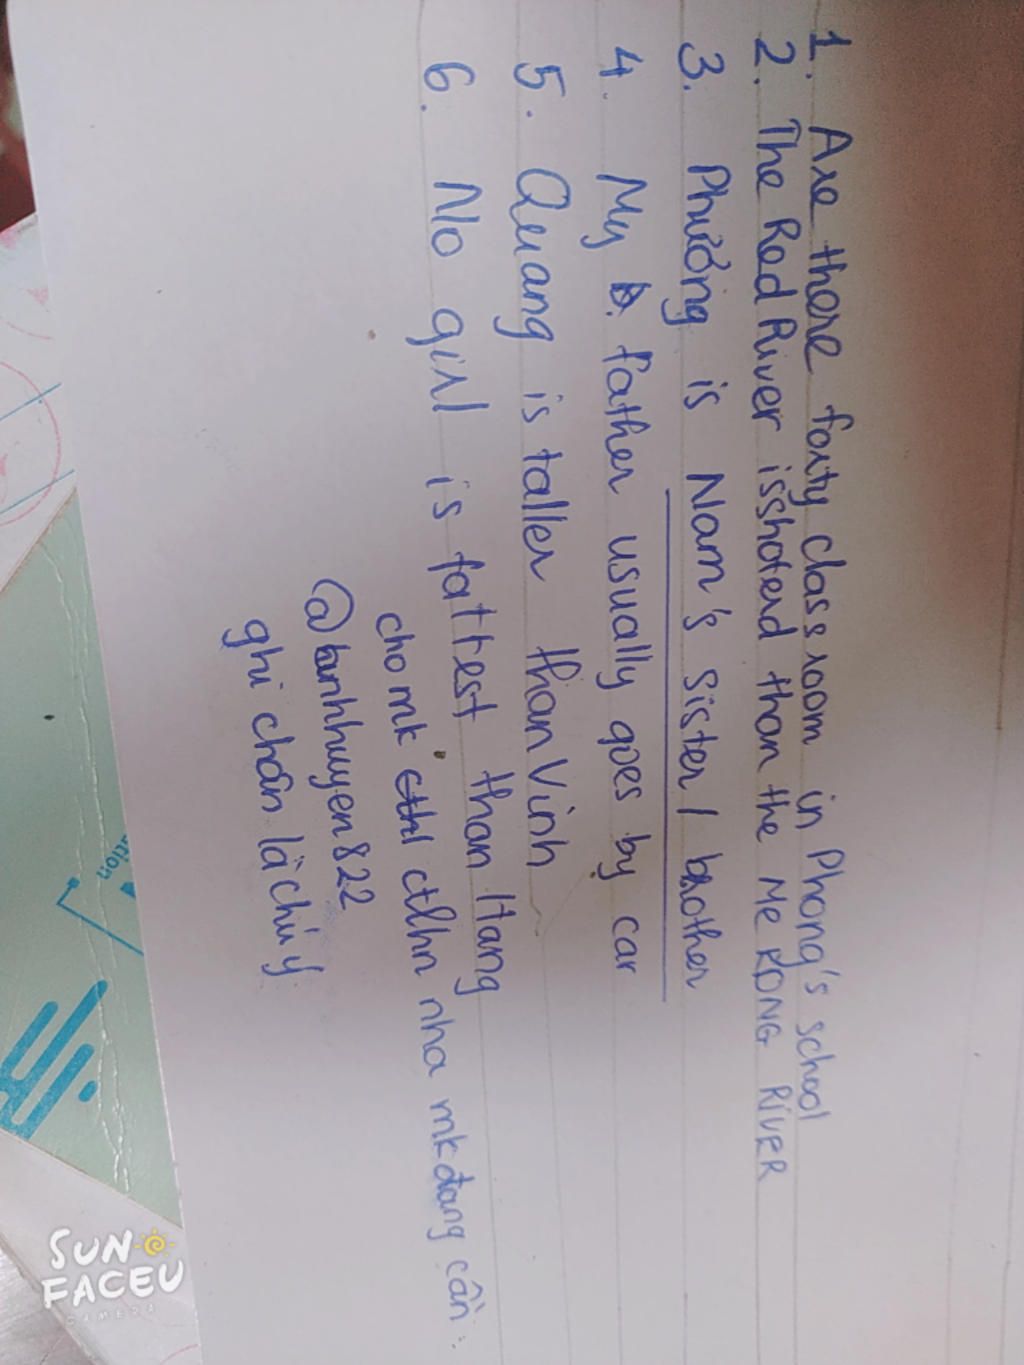 1. Are there forty class room in Phong's school
2. The Red River isshoterd than the MeKONG RIVER
3. Phương is Nam's sister / brother
4. My b. father usually goes by car
5. Quang is taller than Vinh
6. No girl is fattest than Hang
cho mk cthl ctlhn nha mk đang cần.
@banhhuyen822
ghi chấn là chú ý
ation
SUN FACEU
CAMERA